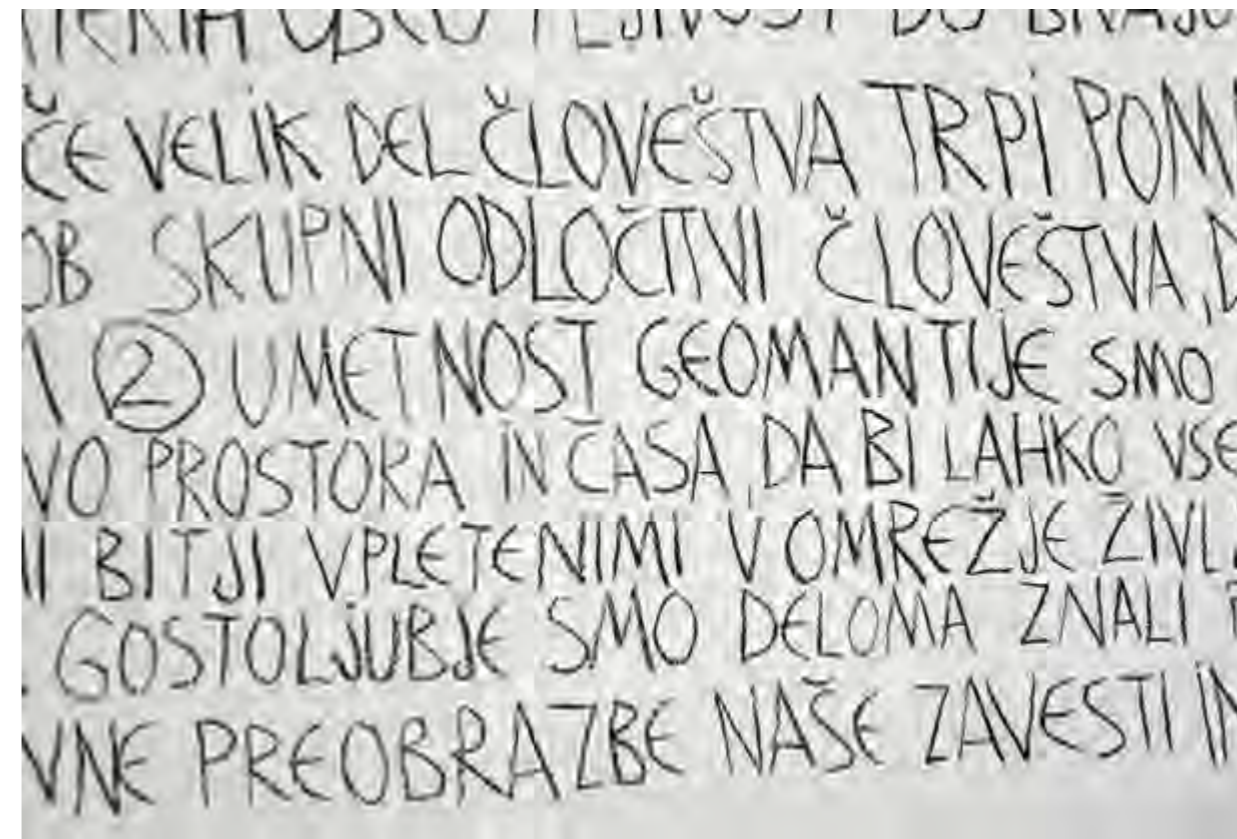 ČE VELIK DEL ČLOVEŠTVA TRPI POM
OB SKUPNI ODLOČITVI ČLOVEŠTVA, D
② UMETNOST GEOMANTIJE SMO
VO PROSTORA IN ČASA, DA BI LAHKO VSE
I BITJI VPLETENIMI V OMREŽJE ŽIVL
GOSTOLJUBJE SMO DELOMA ZNALI
VNE PREOBRAZBE NAŠE ZAVESTI IN